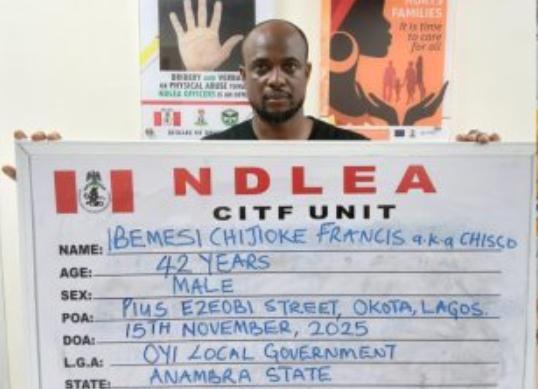 FAMILIES
It is time
to care
for all
BRIBERY AND VERBA
OR PHYSICAL ABUSE TOWA
NDLEA OFFICERS IS AN OFFE
NDLEA
CITF UNIT
NAME: IBEMESI CHIJIOKE FRANCIS a.k.a CHISCO
AGE: 42 YEARS
SEX: MALE
POA: PIUS EZEOBI STREET, OKOTA, LAGOS.
DOA: 15TH NOVEMBER, 2025
L.G.A: OYI LOCAL GOVERNMENT
STATE: ANAMBRA STATE